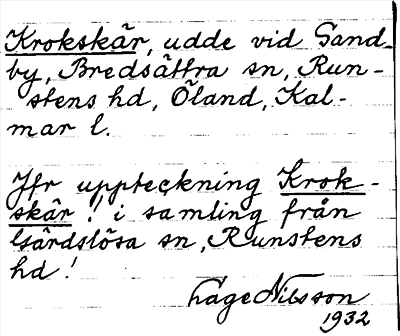 Krokskär, udde vid Sand-
by, Bredsättra sn, Run-
stens hd, Öland, Kal-
mar l.
Jfr uppteckning Krok-
skär! i samling från
Gärdslösa sn, Runstens
hd!
Lage Nilsson
1932